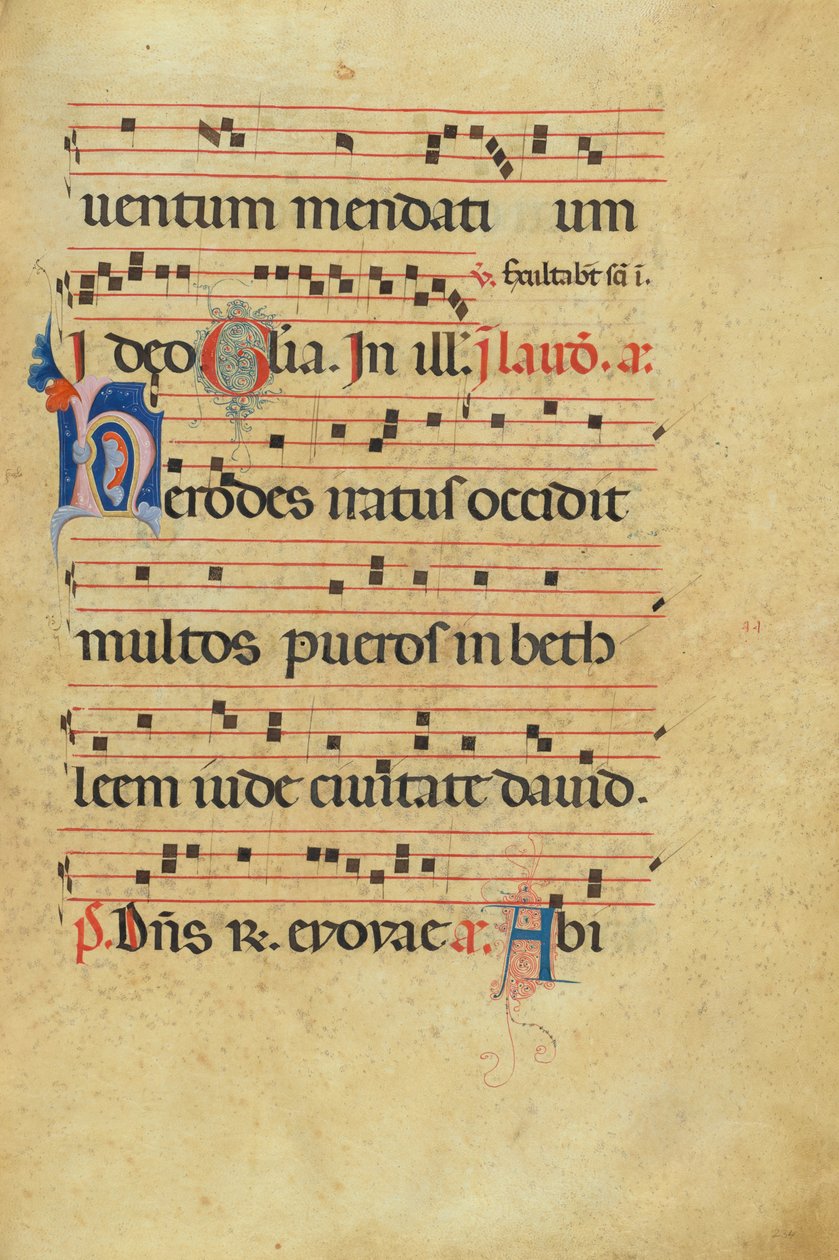 uentum mendati um
v̄. Exultabt̄ sc̄i ī.
I deo Gl̄ia. In ill'. J̄ laud̄. a.
Herodes iratus occidit
multos pueros in beth
leem iude ciuitate dauid.
ps. Dn̄s R. evovae a. Abi
234